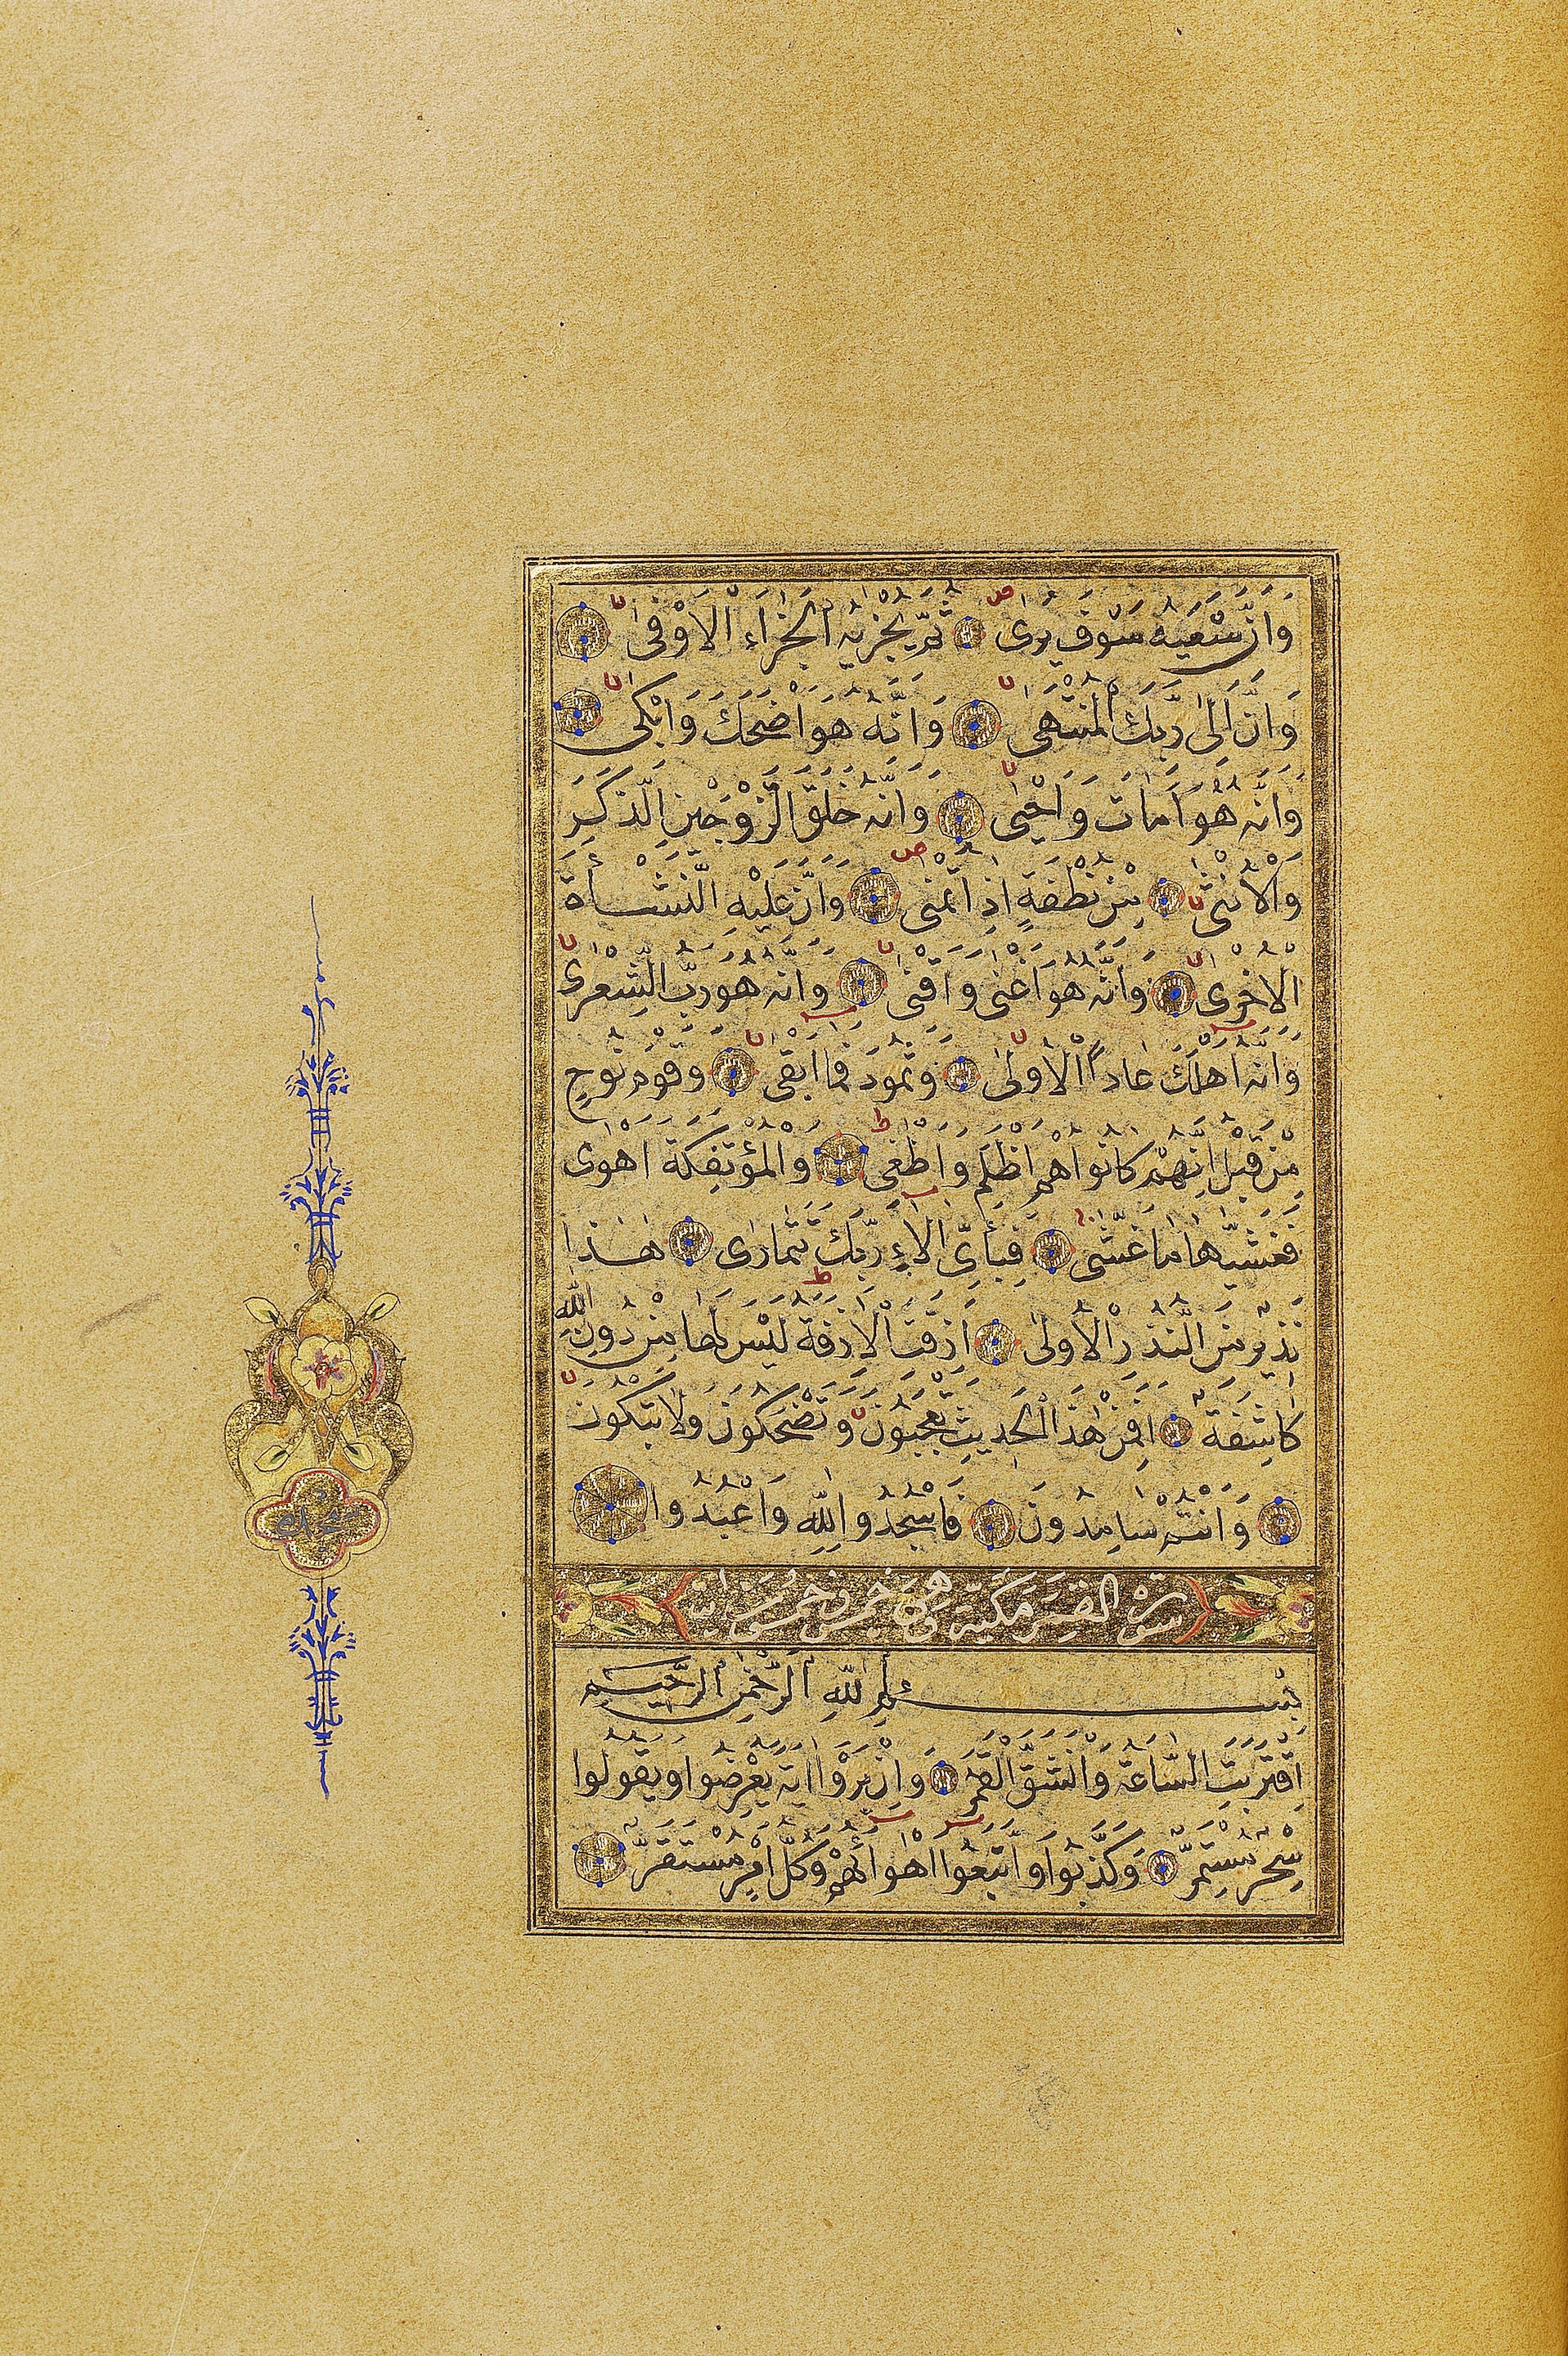 وَاَنَّ سَعْيَهُ سَوْفَ يُرٰى ثُمَّ يُجْزٰيهُ الْجَزَاءَ الْاَوْفٰى
وَاَنَّ اِلٰى رَبِّكَ الْمُنْتَهٰى وَاَنَّهُ هُوَ اَضْحَكَ وَاَبْكٰى
وَاَنَّهُ هُوَ اَمَاتَ وَاَحْيٰى وَاَنَّهُ خَلَقَ الزَّوْجَيْنِ الذَّكَرَ
وَالْاُنْثٰى مِنْ نُطْفَةٍ اِذَا تُمْنٰى وَاَنَّ عَلَيْهِ النَّشْاَةَ
الْاُخْرٰى وَاَنَّهُ هُوَ اَغْنٰى وَاَقْنٰى وَاَنَّهُ هُوَ رَبُّ الشِّعْرٰى
وَاَنَّهُ اَهْلَكَ عَادًا الْاُولٰى وَثَمُودَ فَمَا اَبْقٰى وَقَوْمَ نُوحٍ
مِنْ قَبْلُ اِنَّهُمْ كَانُوا هُمْ اَظْلَمَ وَاَطْغٰى وَالْمُؤْتَفِكَةَ اَهْوٰى
فَغَشّٰيهَا مَا غَشّٰى فَبِاَىِّ اٰلَاءِ رَبِّكَ تَتَمَارٰى هٰذَا
نَذِيرٌ مِنَ النُّذُرِ الْاُولٰى اَزِفَتِ الْاٰزِفَةُ لَيْسَ لَهَا مِنْ دُونِ اللّٰهِ
كَاشِفَةٌ اَفَمِنْ هٰذَا الْحَدِيثِ تَعْجَبُونَ وَتَضْحَكُونَ وَلَا تَبْكُونَ
وَاَنْتُمْ سَامِدُونَ فَاسْجُدُوا لِلّٰهِ وَاعْبُدُوا
سورة القمر مكية وهى خمس وخمسون اية
بِسْمِ اللّٰهِ الرَّحْمٰنِ الرَّحِيمِ
اِقْتَرَبَتِ السَّاعَةُ وَانْشَقَّ الْقَمَرُ وَاِنْ يَرَوْا اٰيَةً يُعْرِضُوا وَيَقُولُوا
سِحْرٌ مُسْتَمِرٌّ وَكَذَّبُوا وَاتَّبَعُوا اَهْوَاءَهُمْ وَكُلُّ اَمْرٍ مُسْتَقِرٌّ
سجدة